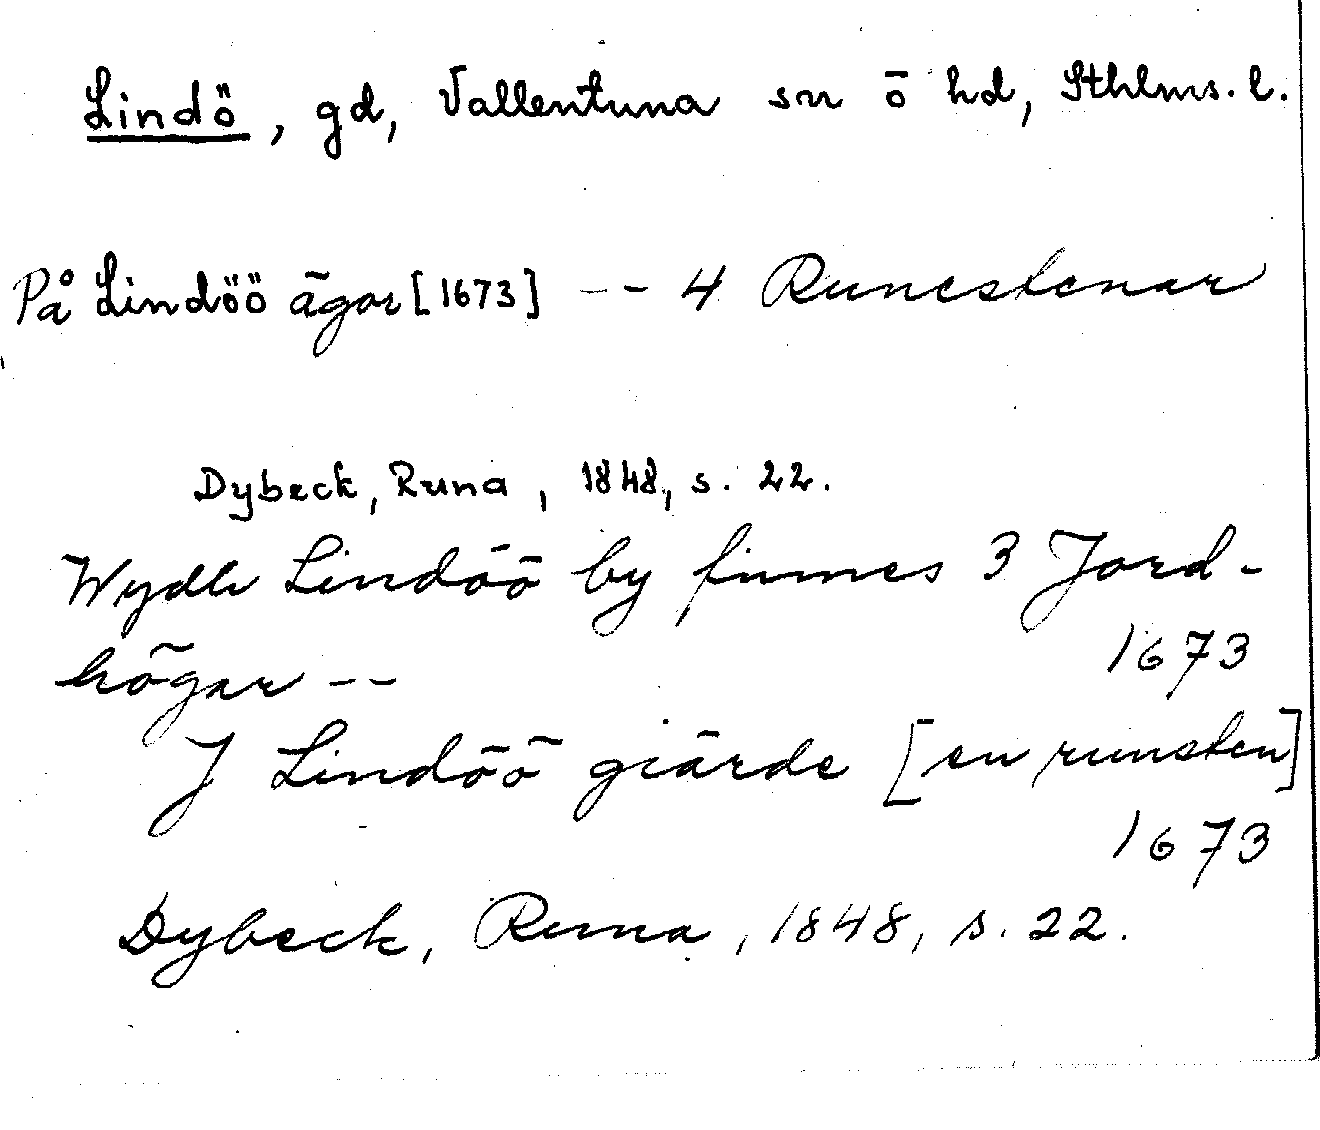 Lindö, gd, Vallentuna sn o hd, Sthlms. l.
På Lindöö ägor [1673] -- 4 Runestenar
Dybeck, Runa, 1848, s. 22.
Wydh Lindöö by finnes 3 Jord-
högar -- 1673
J Lindöö giärde [en runsten]
1673
Dybeck, Runa, 1848, s. 22.